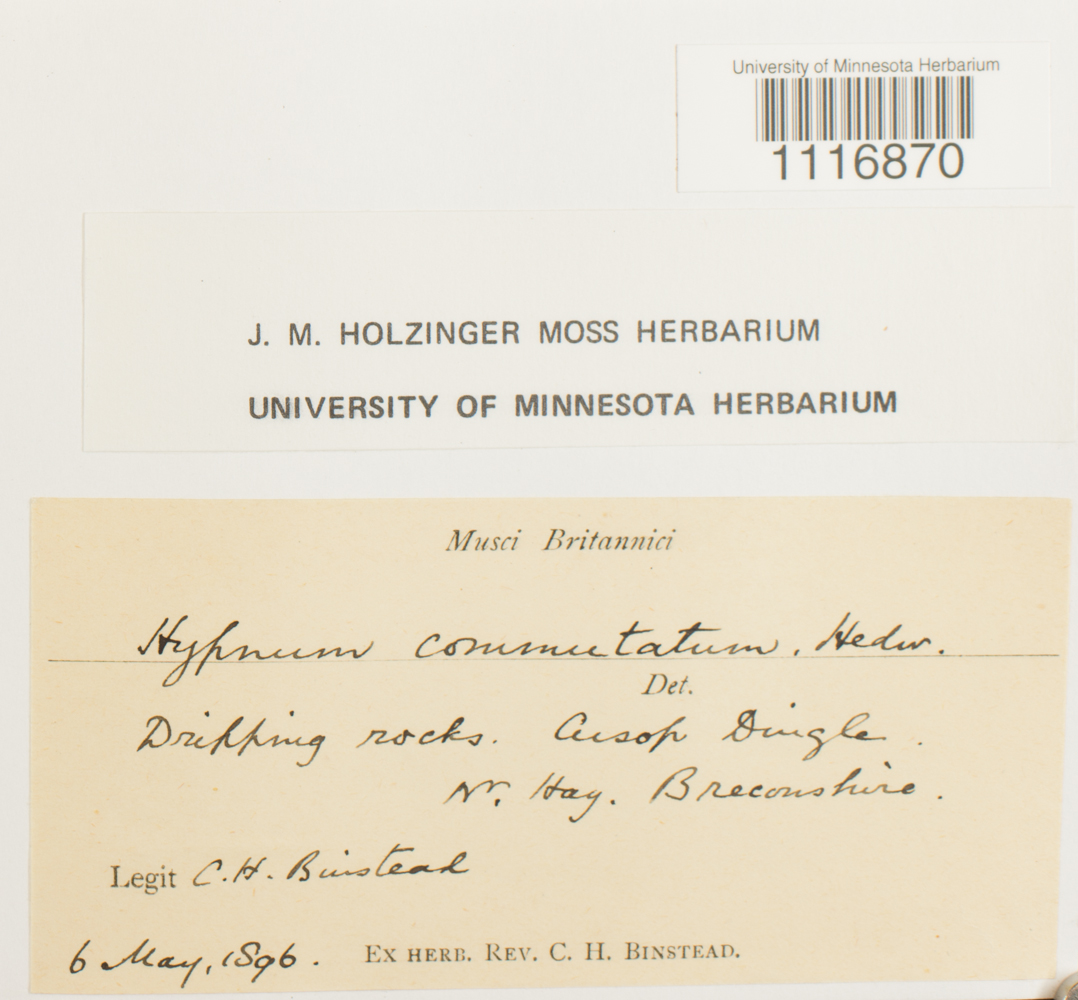 University of Minnesota Herbarium
1116870
J. M. HOLZINGER MOSS HERBARIUM
UNIVERSITY OF MINNESOTA HERBARIUM
Musci Britannici
Hypnum commutatum. Hedw.
Det.
Dripping rocks. Cusop Dingle.
Nr. Hay. Breconshire.
Legit C. H. Binstead
6 May, 1896. EX HERB. REV. C. H. BINSTEAD.